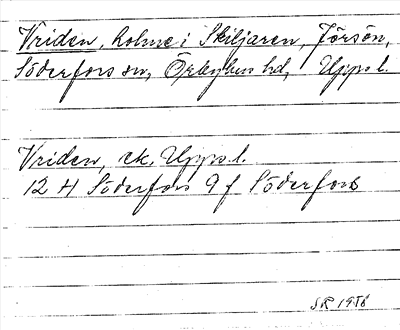 Vriden, holme i Skiljaren, Jörsön,
Söderfors sn, Örbyhus hd, Upps. l.
Vriden, ek, Upps. l.
12 H Söderfors 9 f Söderfors
SR 1956